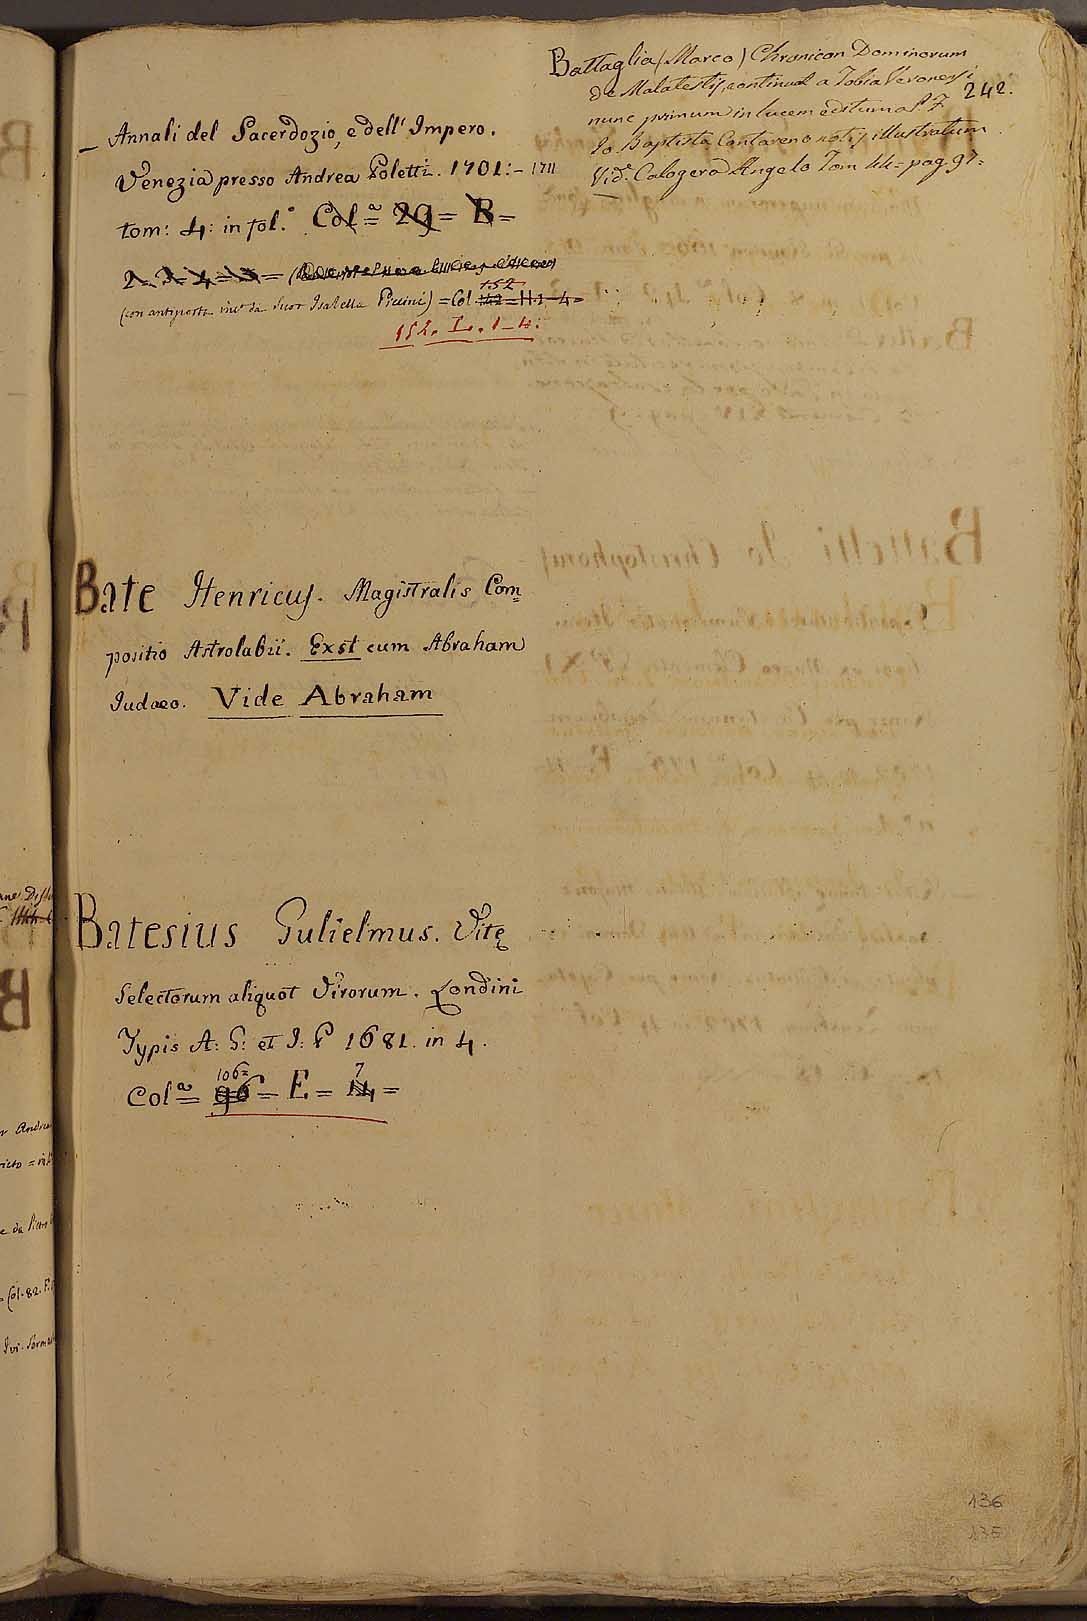 Battaglia (Marco) Chronicon Dominorum
de Malatestis, continuat. a Tobia Veronensi
nunc primum in lucem editum a P. F.
Jo. Baptista Contareno notis illustratum.
Vid. Calogera Angelo Tom 44 = pag. 97 =
242.
Annali del Sacerdozio, e dell' Impero.
Venezia presso Andrea Poletti. 1701: - 1711
tom: 4: in fol.º Colª = 29 = B =
2 = 3 = 4 = 5 =
(con antiporta inta da Suor Isabella Piccini) = Col 152 = H. 1 - 4 =
152. L. 1 - 4.
Bate Henricus. Magistralis Com=
positio Astrolabii. Exst cum Abraham
Iudaeo. Vide Abraham
Batesius Gulielmus. Vitę
Selectorum aliquot Virorum. Londini
Typis A: G: et J: P 1681. in 4.
106= 7
Colª = 96 = E = 14 =
136
135